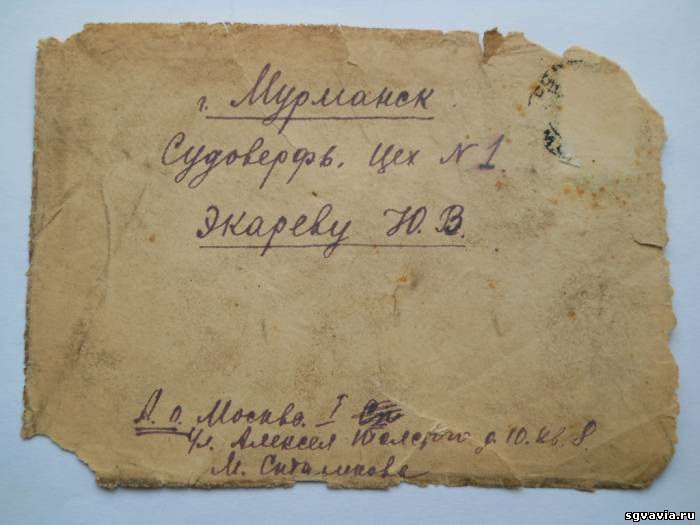 г. Мурманск
Судоверфь. Цех N 1.
Экареву Ю. В.
А. п. Москва. I
Ул. Алексея Толстого д. 10. кв. 8.
М.
sgvavia.ru